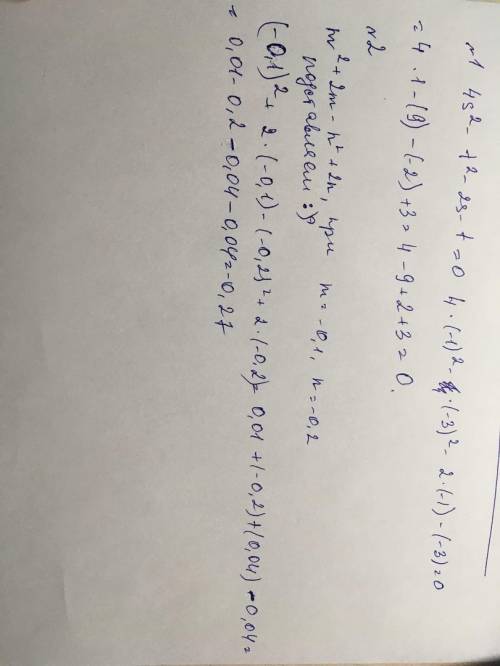 №1 4s² - t² - 2s - t = 0 4·(-1)² - (-3)² - 2·(-1) - (-3) = 0
= 4·1 - (9) - (-2) + 3 = 4 - 9 + 2 + 3 = 0.
№2
m² + 2m - n² + 2n, при m = -0,1, n = -0,2
подставляем :)
(-0,1)² + 2·(-0,1) - (-0,2)² + 2·(-0,2) = 0,01 + (-0,2) + (0,04) - 0,04 =
= 0,01 - 0,2 - 0,04 - 0,04 = -0,27